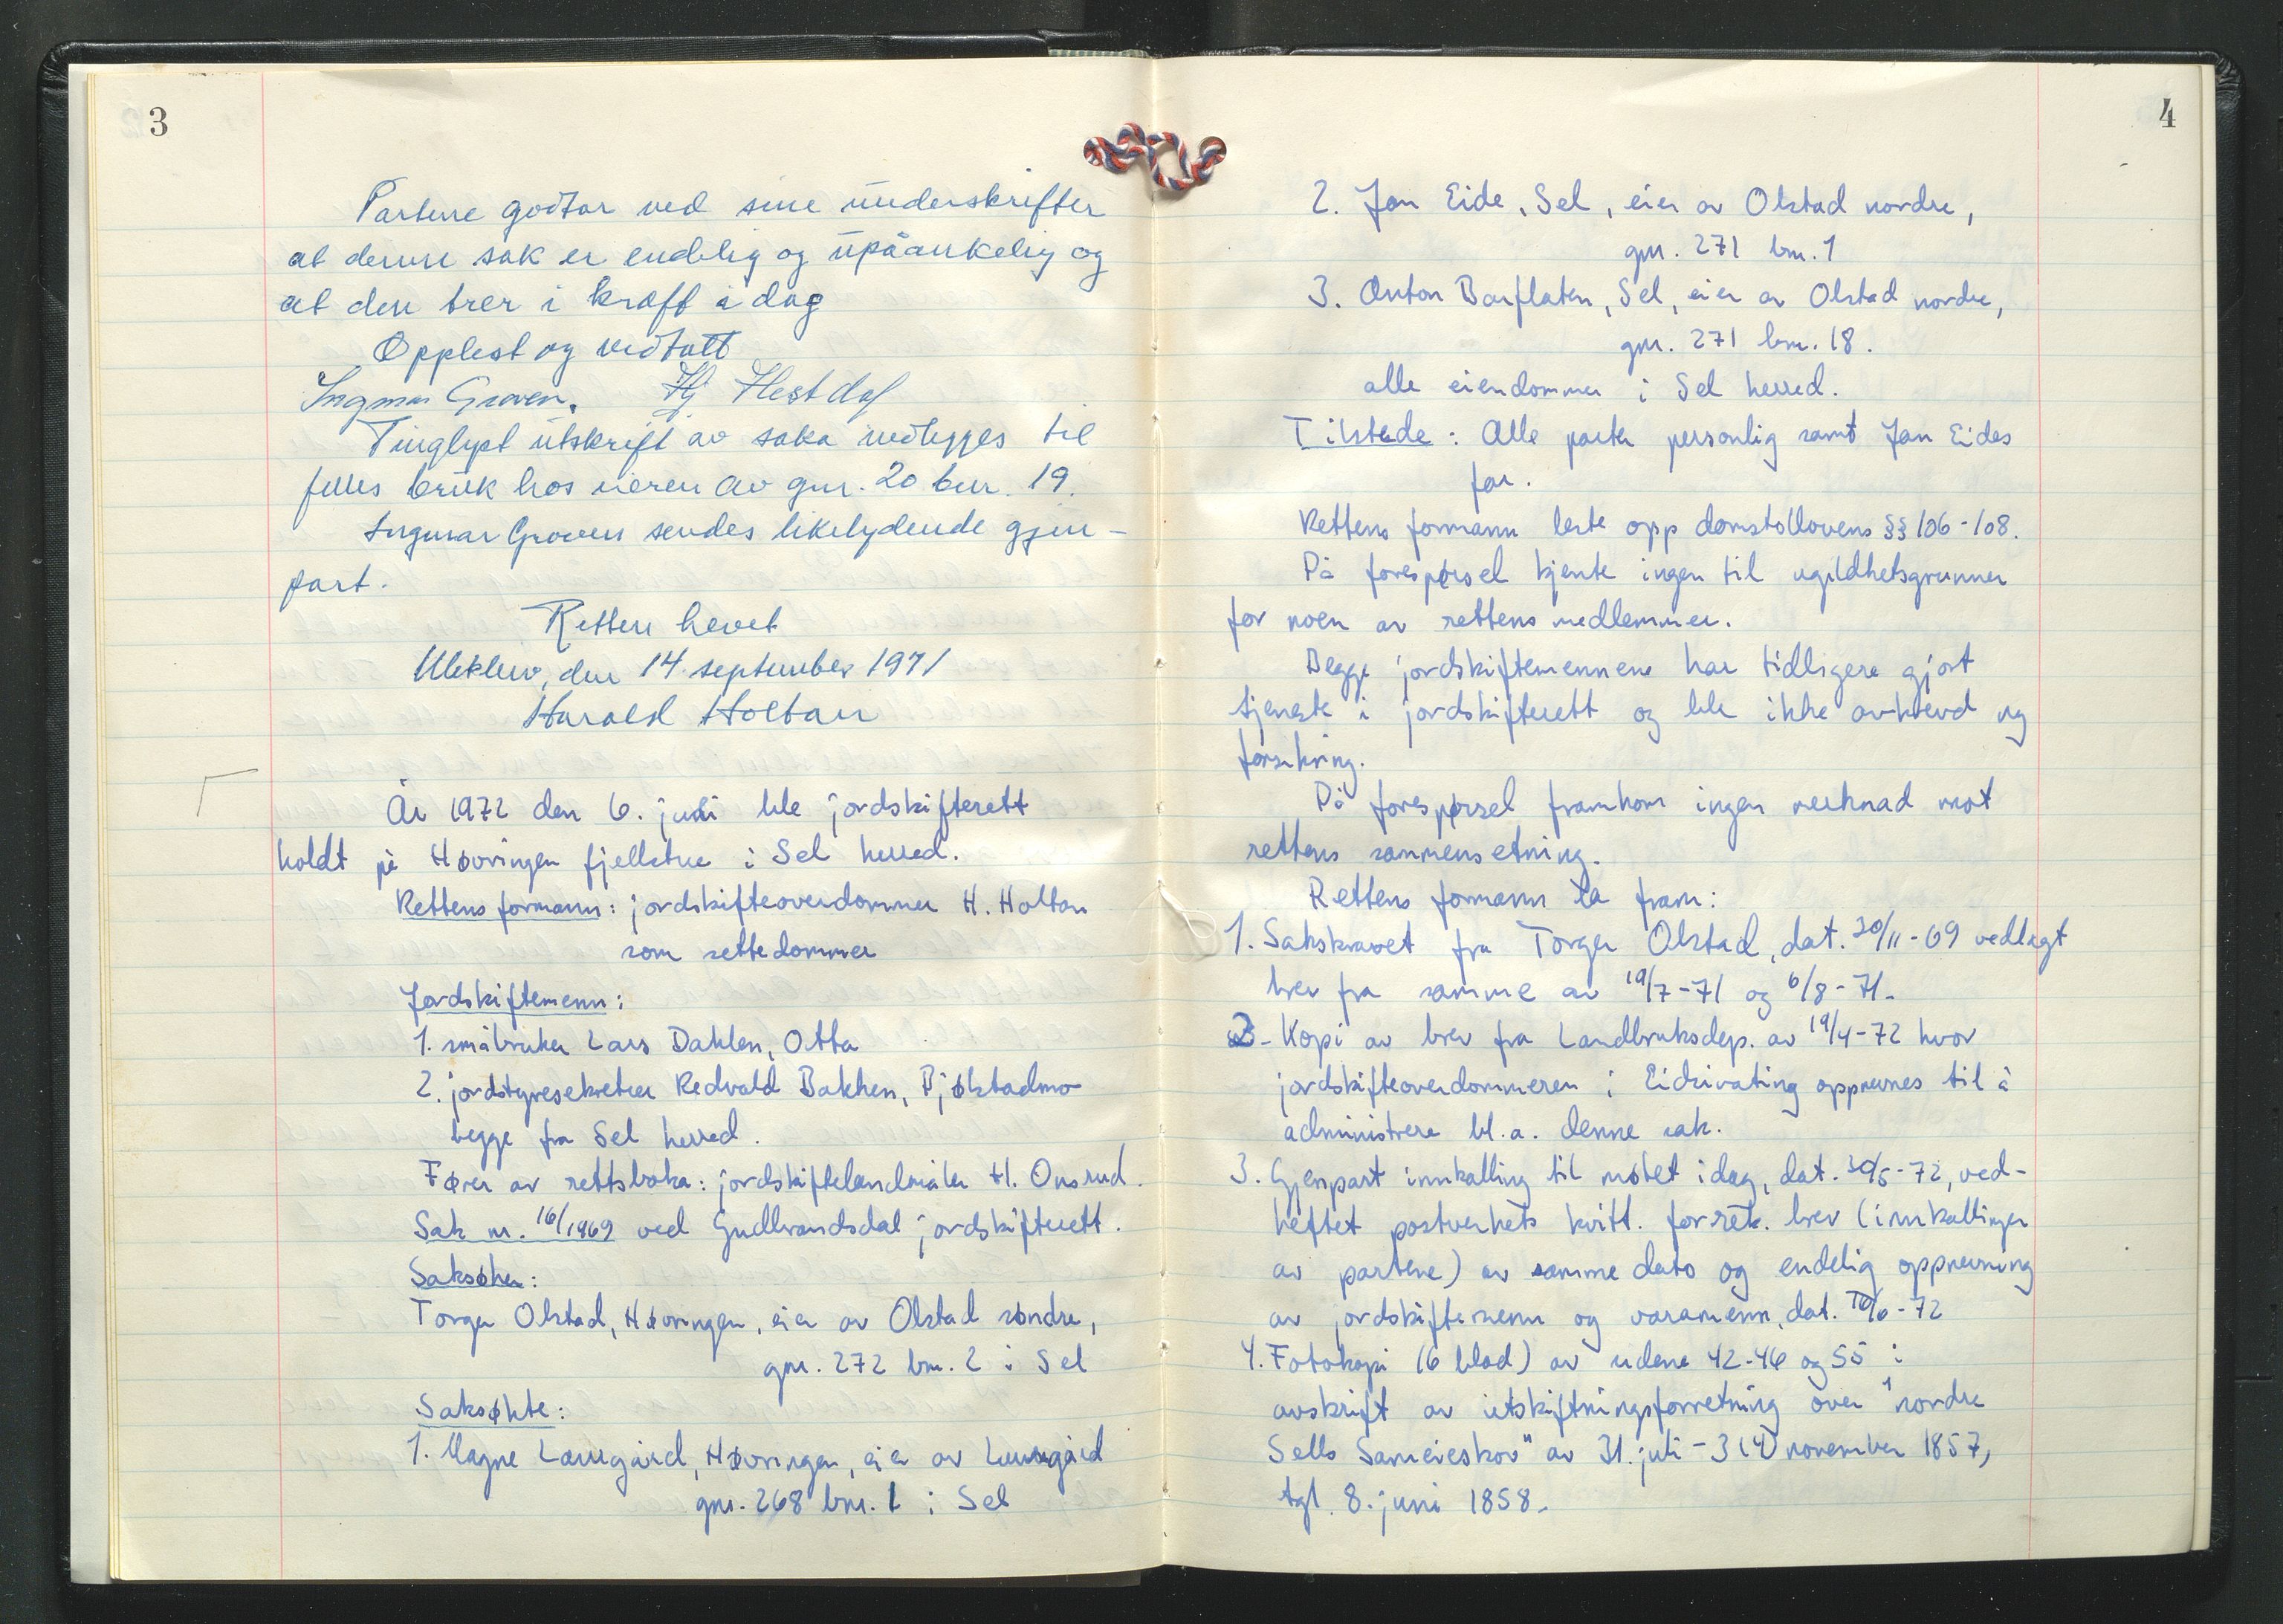 3
Partene godtar ved sine underskrifter
at denne sak er endelig og upåankelig og
at den trer i kraft i dag
Opplest og vedtatt
Ingmar Groven. Hj Hestdal
Tinglyst utskrift av saka vedlegges til
felles bruk hos eieren av gnr. 20 bnr. 19.
Ingmar Groven sendes likelydende gjen-
part.
Retten hevet
Uleklev, den 14. september 1971
Harald Holtan
År 1972 den 6. juli ble jordskifterett
holdt på Høvringen fjellstue i Sel herred.
Rettens formann: jordskifteoverdommer H. Holtan
som settedommer
Jordskiftemenn:
1. småbruker Lars Dahlen, Otta
2. jordstyresekretær Redvald Bakken, Bjølstadmo
begge fra Sel herred.
Fører av rettsboka: jordskiftelandmåler H. Onsrud.
Sak nr. 16/1969 ved Gudbrandsdal jordskifterett.
Saksøker:
Torger Olstad, Høvringen, eier av Olstad søndre,
gnr. 272 bnr. 2 i Sel
Saksøkte:
1. Magne Laurgård, Høvringen, eier av Laurgård
gnr. 268 bnr. 1 i Sel
4
2. Jan Eide, Sel, eier av Olstad nordre,
gnr. 271 bnr. 1
3. Anton Barflaten, Sel, eier av Olstad nordre,
gnr. 271 bnr. 18.
alle eiendommer i Sel herred.
Tilstede: Alle parter personlig samt Jan Eides
far.
Rettens formann leste opp domstollovens §§ 106-108.
På forespørsel kjente ingen til ugildhetsgrunner
for noen av rettens medlemmer.
Begge jordskiftemennene har tidligere gjort
tjeneste i jordskifterett og ble ikke avkrevd ny
forsikring.
På forespørsel framkom ingen merknad mot
rettens sammensetning.
Rettens formann la fram:
1. Sakskravet fra Torger Olstad, dat. 20/11-69 vedlagt
brev fra samme av 19/7-71 og 6/8-71.
2. Kopi av brev fra Landbruksdep. av 19/4-72 hvor
jordskifteoverdommeren i Eidsivating oppnevnes til å
administrere bl.a. denne sak.
3. Gjenpart innkalling til møtet idag, dat. 30/5-72, ved-
heftet postverkets kvitt. for rek. brev (innkallinger
av partene) av samme dato og endelig oppnevning
av jordskiftemenn og varamenn, dat. /6-72
4. Fotokopi (6 blad) av sidene 42-46 og 55 i
avskrift av utskiftningsforretning over "nordre
Sells Sameieskov" av 31. juli - 3 (4) november 1857,
tgl. 8. juni 1858.